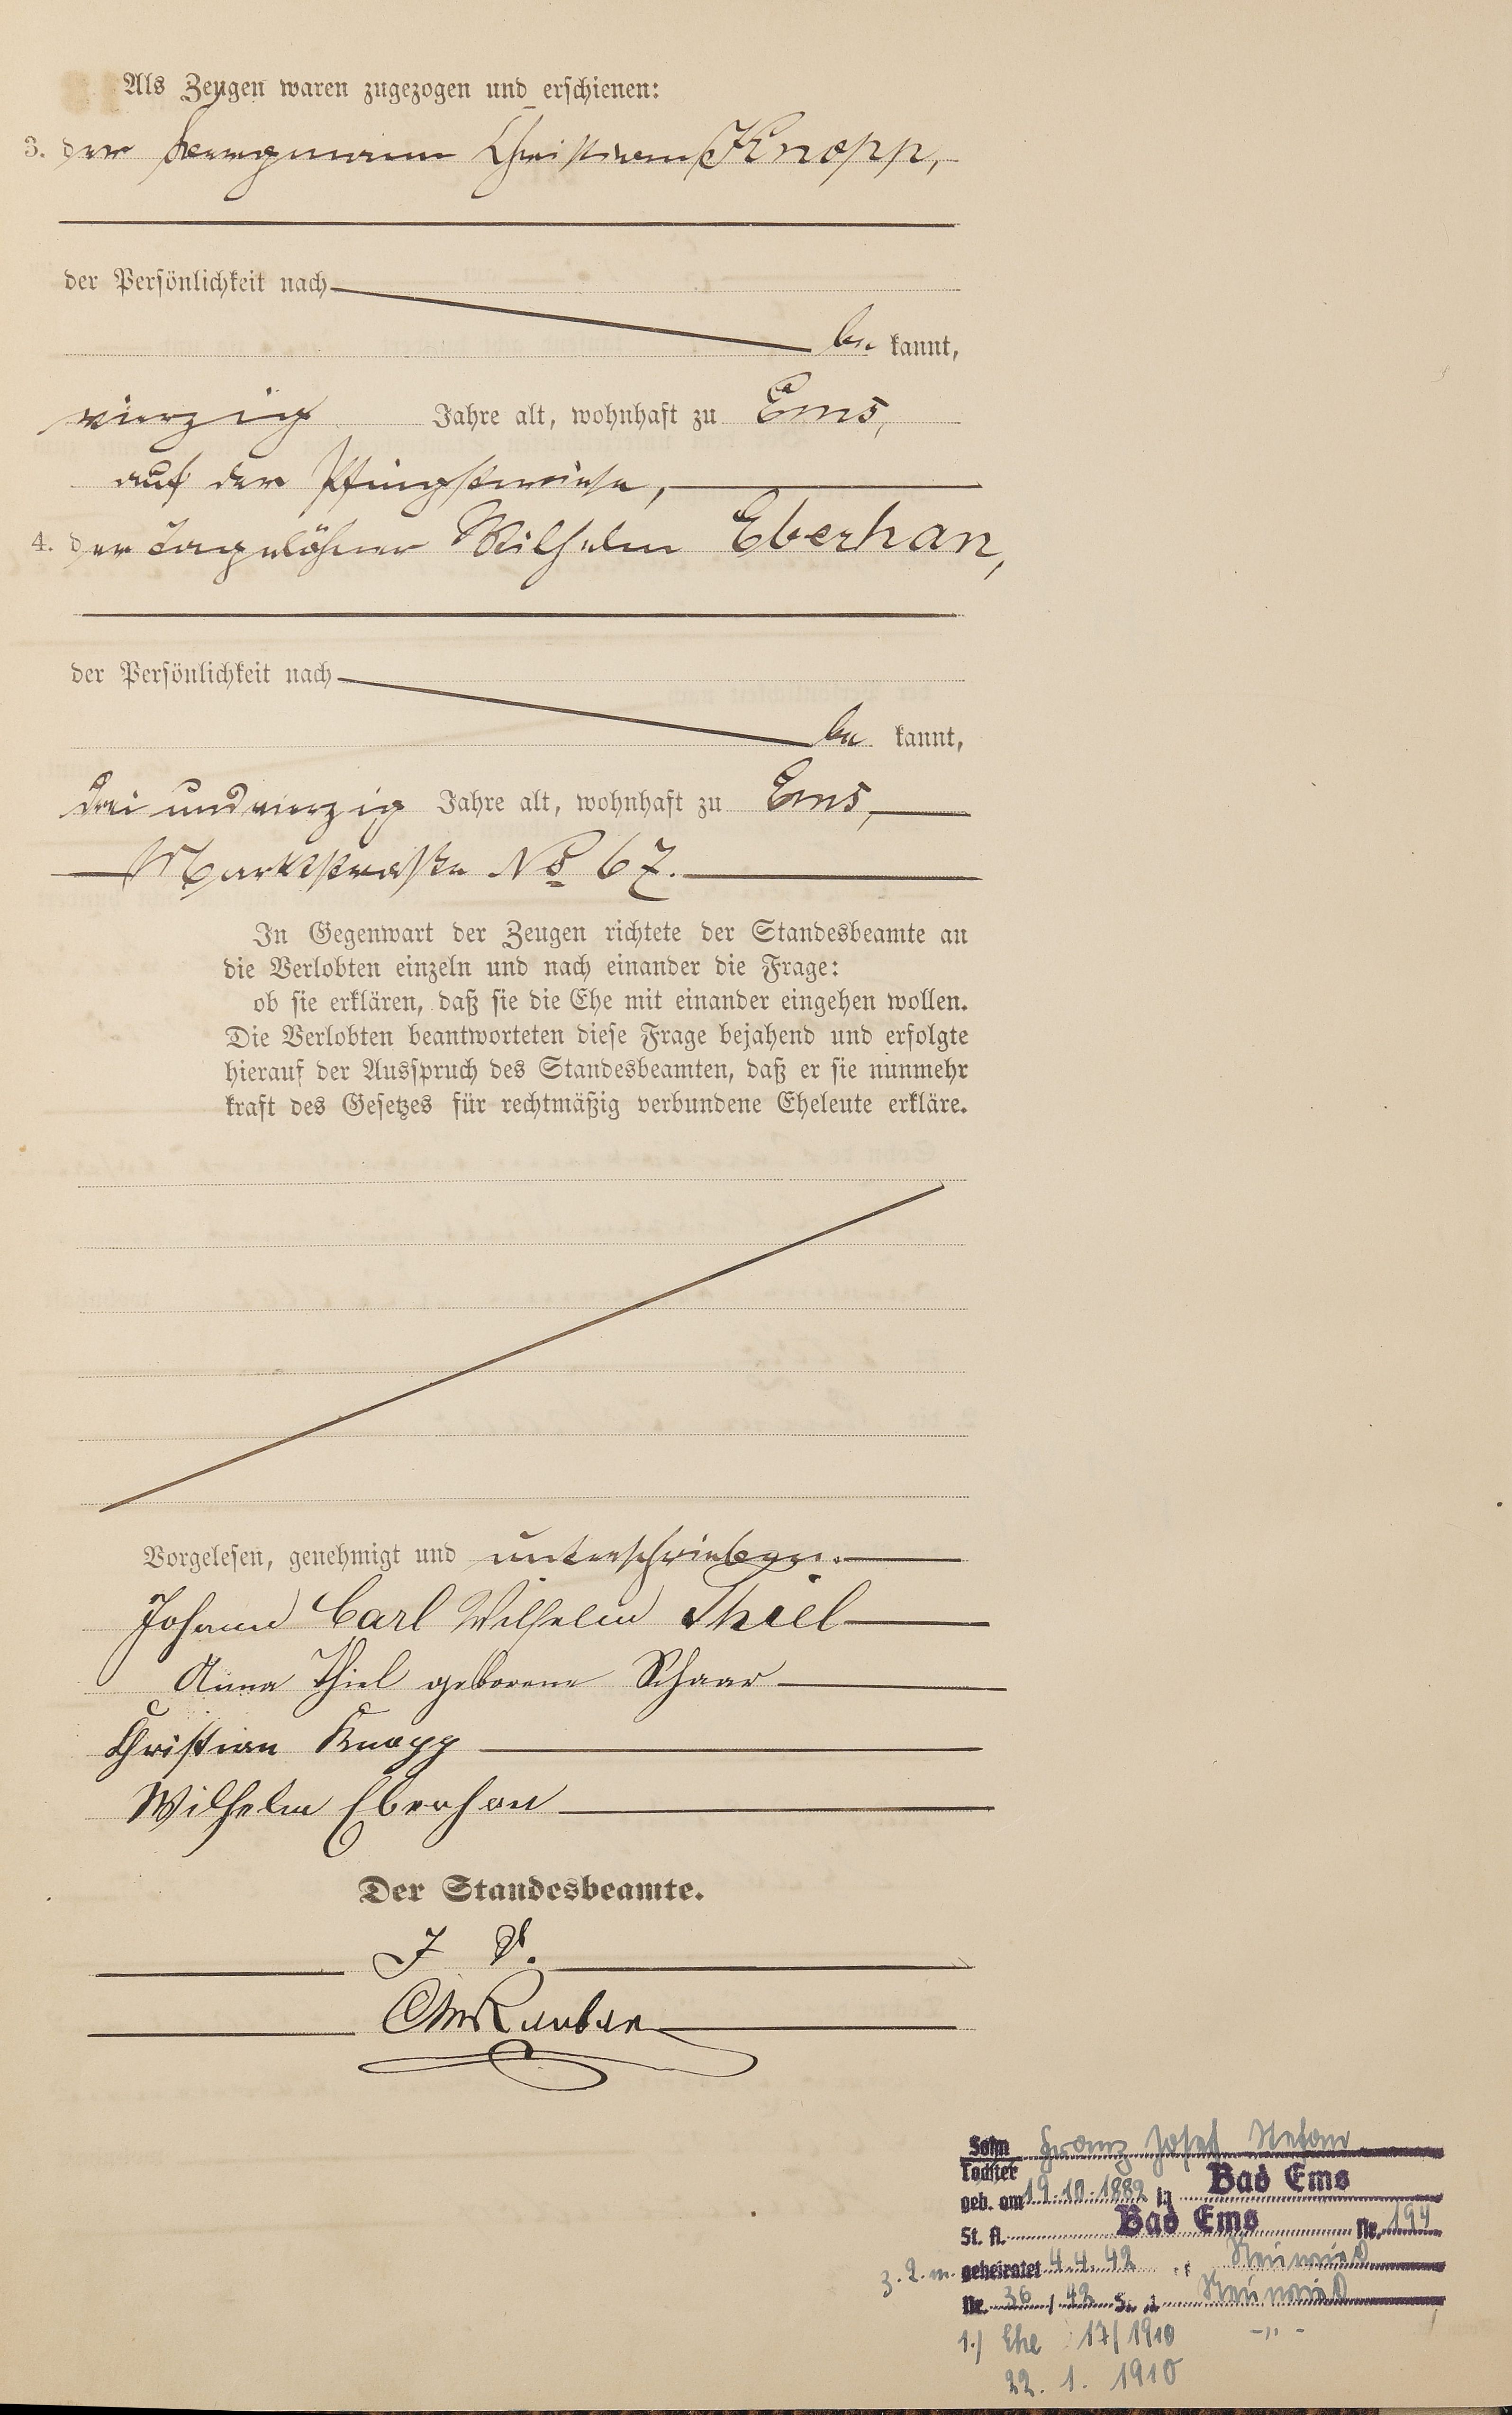 Als Zeugen waren zugezogen und erschienen:
3. der Bergmann Christian Knopp,
der Persönlichkeit nach
be kannt,
vierzig Jahre alt, wohnhaft zu Ems,
auf der Pfingstwiese,
4. der Tagelöhner Wilhelm Eberhan,
der Persönlichkeit nach
be kannt,
drei und vierzig Jahre alt, wohnhaft zu Ems,
Marktstraße No 67.
In Gegenwart der Zeugen richtete der Standesbeamte an
die Verlobten einzeln und nach einander die Frage:
ob sie erklären, daß sie die Ehe mit einander eingehen wollen.
Die Verlobten beantworteten diese Frage bejahend und erfolgte
hierauf der Ausspruch des Standesbeamten, daß er sie nunmehr
kraft des Gesetzes für rechtmäßig verbundene Eheleute erkläre.
Vorgelesen, genehmigt und unterschrieben.
Johann Carl Wilhelm Thiel
Anna Thiel geborene Schaar
Christian Knopp
Wilhelm Eberhan
Der Standesbeamte.
J. V.
Sohn Franz Josef Stefan
Tochter
geb. am 19.10.1882 in Bad Ems
St. A. Bad Ems Nr. 194
3. 2. m. geheiratet 4.4.42 Neuwied
Nr. 36 / 42 St. A. Neuwied
1.) Ehe 17/1910 -"-
22. 1. 1910